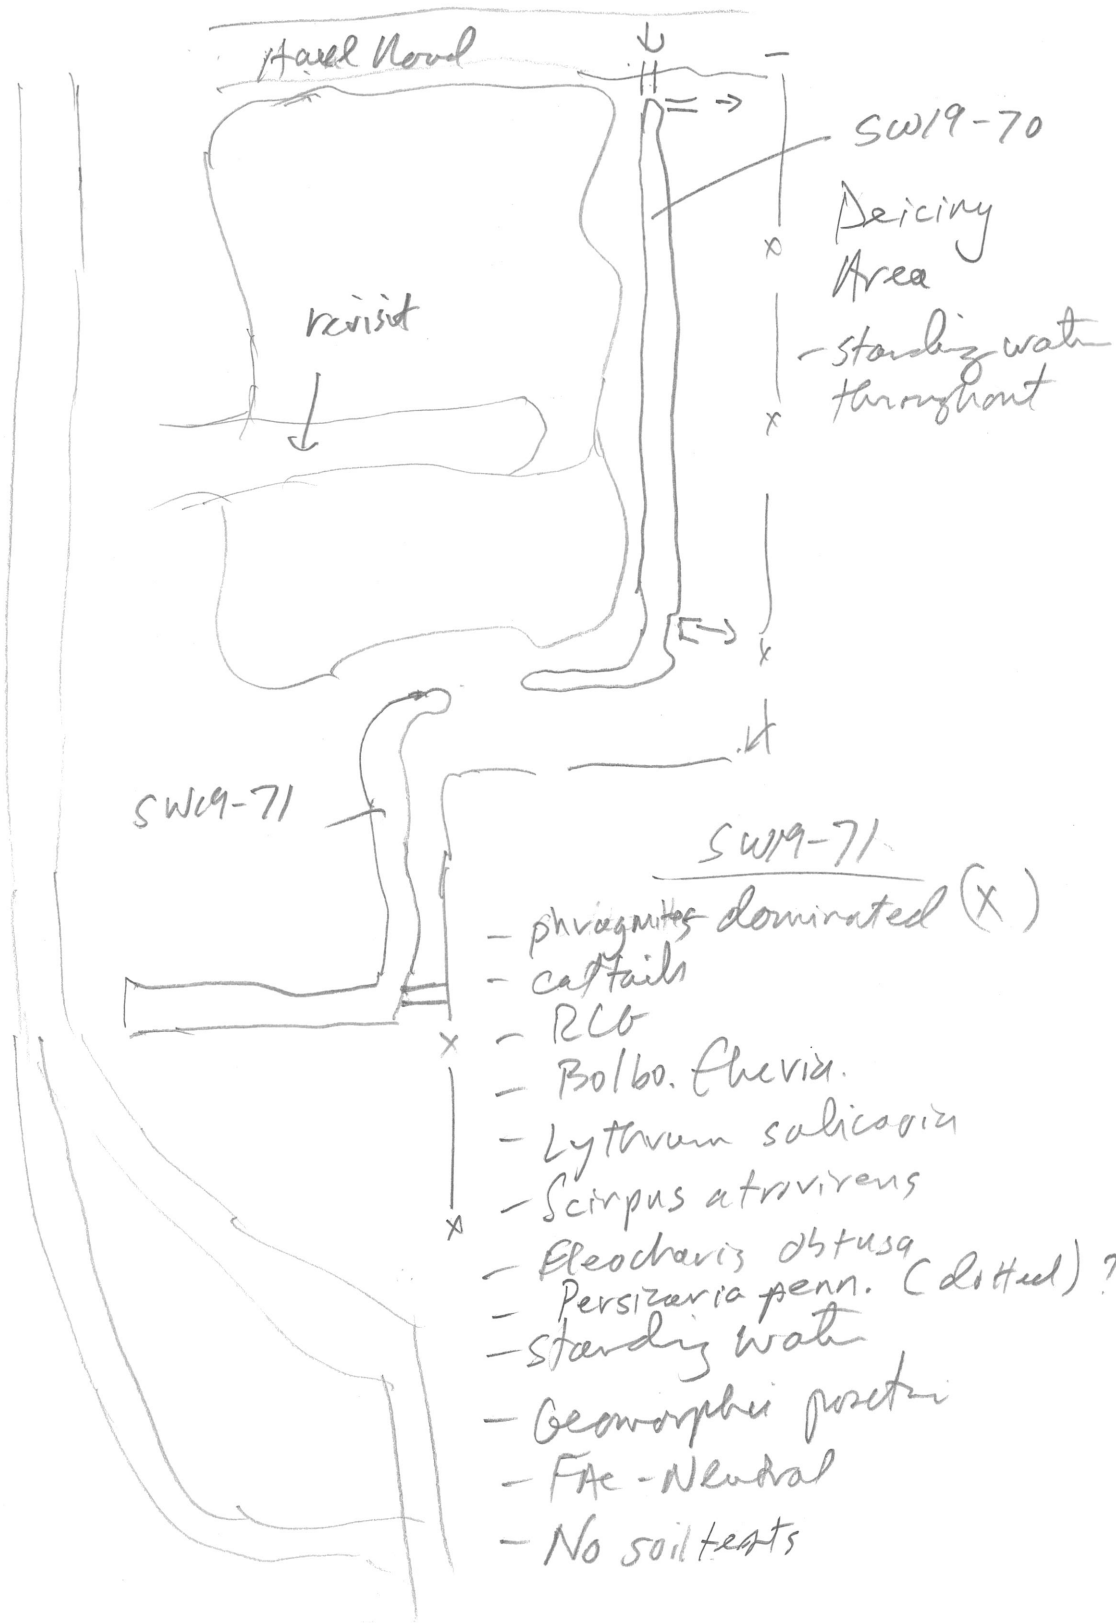 Road
SW19-70
Deicing
Area
- standing water
throughout
revisit
SW19-71
SW19-71
- phragmites dominated (X)
- cattails
- RCG
- Bolbo. fluvia.
- Lythrum salicaria
- Scirpus atrovirens
- Eleocharis obtusa
- Persicaria penn. (dotted)?
- standing water
- Geomorphic position
- FAC-Neutral
- No soil tests